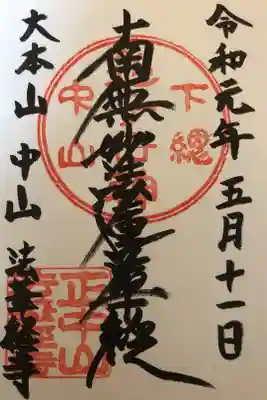 令和元年五月十一日
南無妙法蓮華経
大本山 中山 法華経寺
下總
中山
正中山